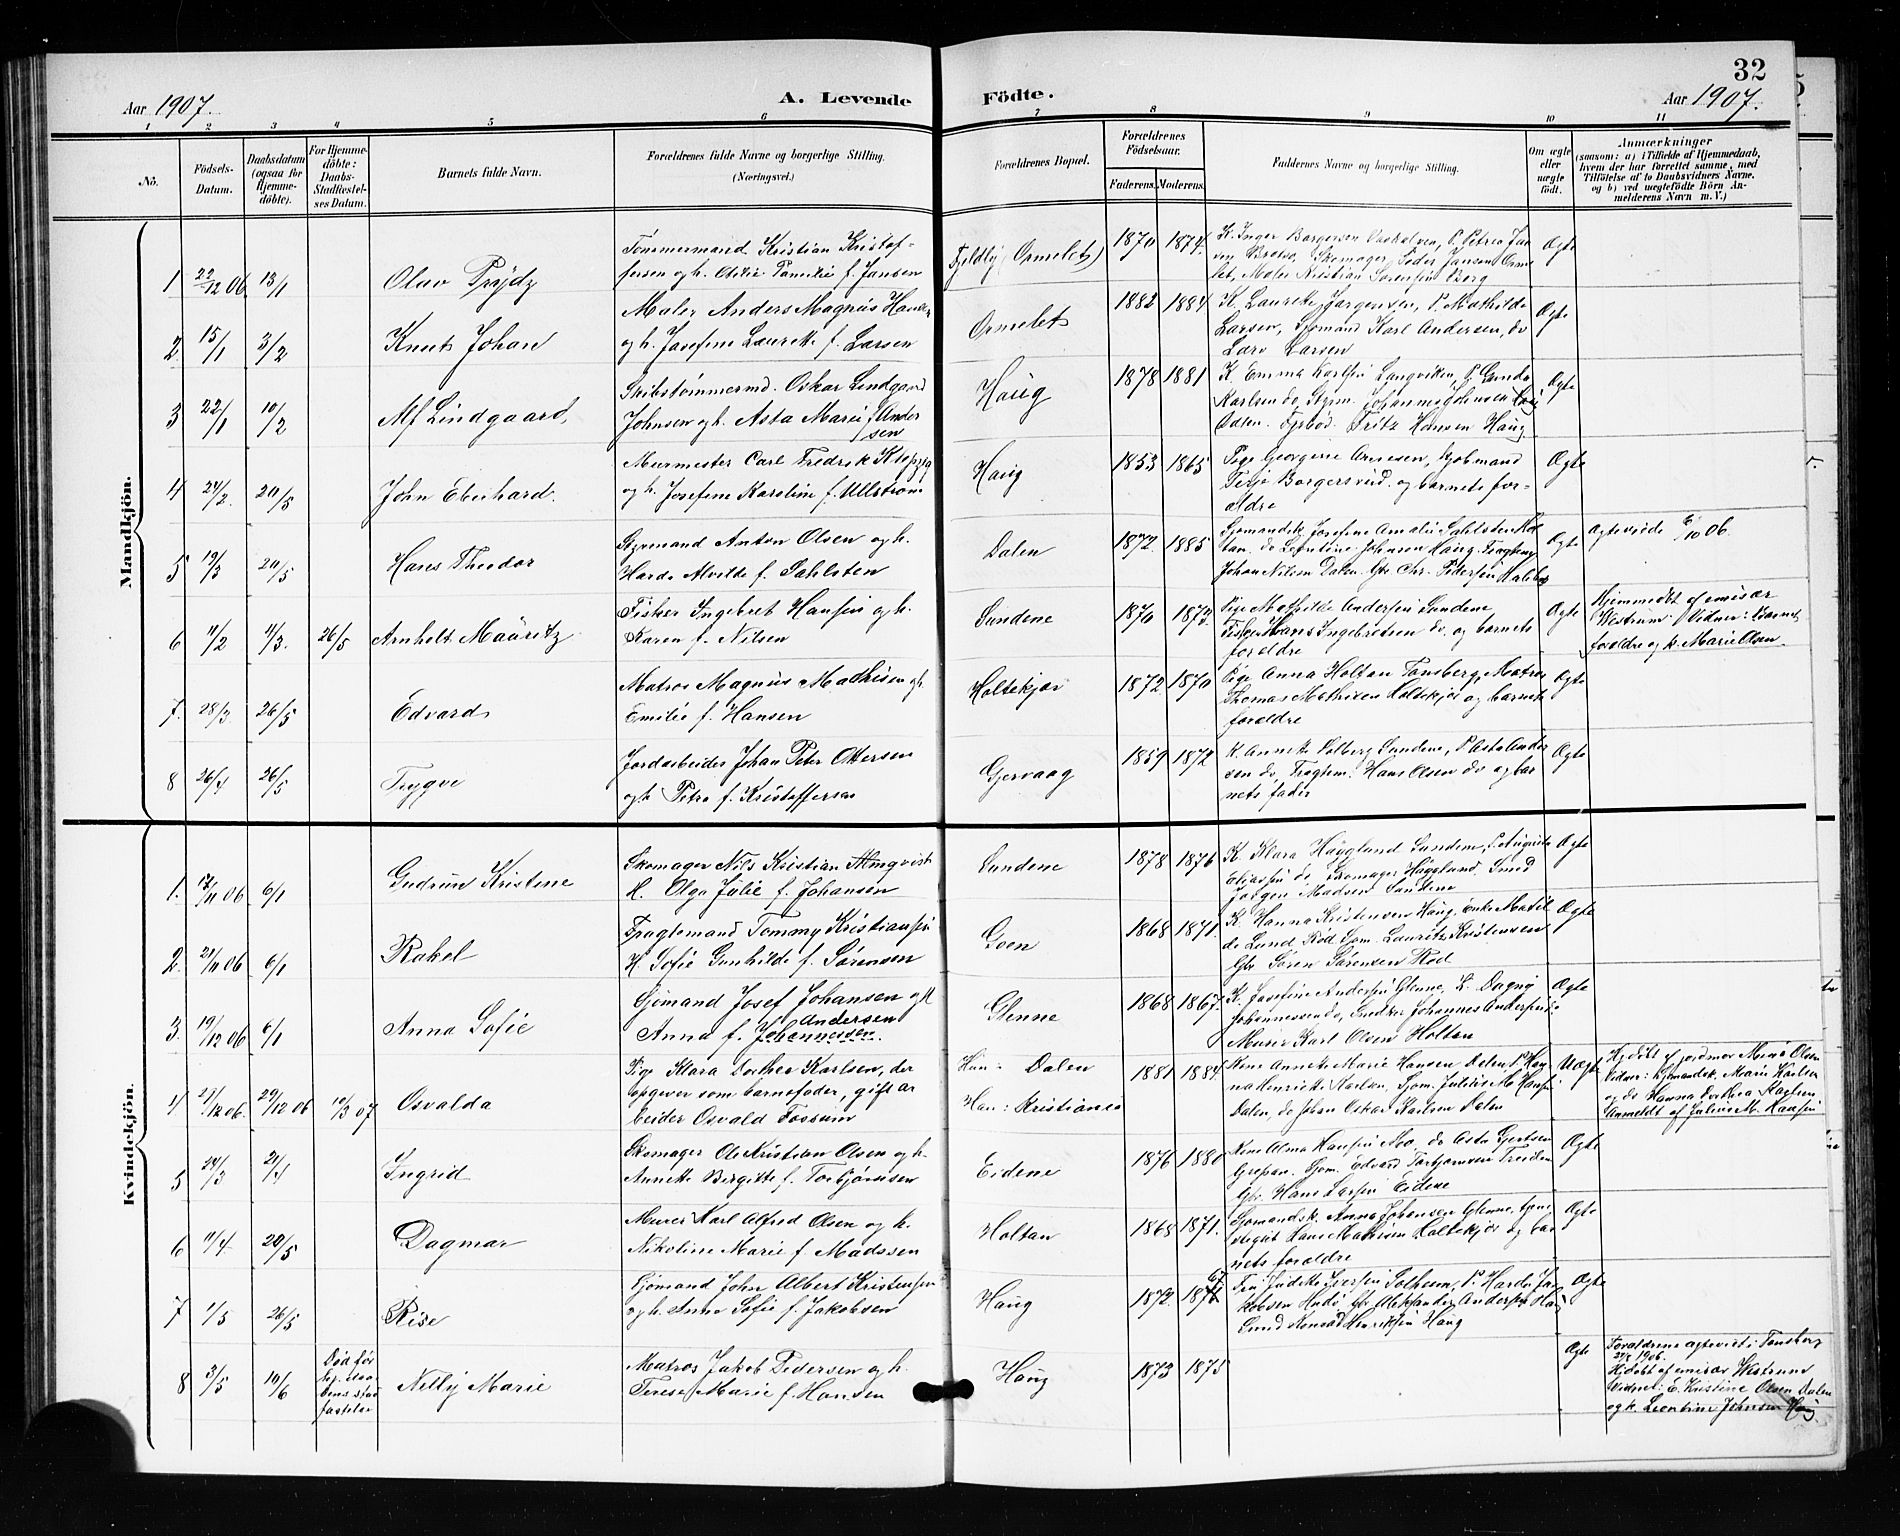 32
Aar 1907.
A. Levende
Födte.
Aar 1907.
1 2 3 4 5 6 7 8 9 10 11
No.
Födsels-
Datum.
Daabsdatum
(ogsaa for
Hjemme-
döbte).
For Hjemme-
döbte:
Daabs-
Stadfæstel-
ses Datum.
Barnets fulde Navn.
Forældrenes fulde Navne og borgerlige Stilling.
(Næringsvei.)
Forældrenes Bopæl.
Forældrenes
Födselsaar.
Faderens. Moderens.
Faddernes Navne og borgerlige Stilling.
Om ægte
eller
uægte
födt.
Anmærkninger
(saasom: a) i Tilfælde af Hjemmedaab,
hvem der har forrettet samme, med
Tilföielse af to Daabsvidners Navne,
og b) ved uægtefödte Börn An-
melderens Navn m. V.)
Mandkjön.
1 22/12 06 13/1 Olav Prydz
Tømmermand Kristian Kristof-
fersen og h. f. Jansen
Fjeldly (Ormelet) 1870 1874.
K. Inger Borgersen, P. Petrea Jan-
sen Brøtsø, Skomager Peder Jansen Orme-
let, Maler Kristian Sørensen Borg
Ægte
2. 15/1 3/2 Knut Johan
Maler Anders Magnus Hansen
og h. Josefine Laurette f. Larsen
Ormelet 1882 1884.
K. Laurette Jørgensen, P. Mathilde
Larsen, Sjømand Karl Andersen, do
Lars Larsen
Ægte
3 22/1 10/2 Alf Lindgaard,
Skibstømmermd. Oskar Lindgaard
Johnsen og h. Asta Marie f. Ander
sen
Haug 1878 1881
K. Emma Karlsen Langviken, P. Gunda
Karlsen do, Styrm. Johannes Johnsen Haug
Odlen. Fyrbød. Fritz Hansen Haug
Ægte
4 24/2. 20/5 John Eberhard.
Murmester Carl Fredrik Klepzig
og h. Josefine Karoline f. Ullstrøm
Haug 1853 1865
Pige Georgine Arnesen, Kjøbmand
Terje Borgersrud og barnets for-
ældre
Ægte
5 19/3 20/5 Hans Theodor
Styrmand Anton Olsen og h.
Harda Alvilde f. Sahlsten
Dalen 1872. 1885
Sjømandsk. Josefine Amalie Sahlsten Hol
tan. do Leontine Johnsen Haug. Fragtem.
Johan Nilsen Dalen. Gbr. Chr. Pedersen
Ægte
Ægteviede 6/10 06.
6 11/2 11/3. 26/5 Arnholt Mauritz
Fisker Ingebret Hansen og h.
Karen f. Nilsen
Sundene 1870 1873.
Pige Mathilde Andersen Sundene,
Fisker Hans Ingebretsen do. og barnets
forældre
Ægte
Hjemmedøbt af emisær
Westrum. Vidner: Barnets
forældre og k. Marie Olsen
7. 28/3 26/5 Edvard
Matros Magnus Mathisen og h.
Emilie f. Hansen
Holtekjær 1872 1870
Pige Anna Holtan Tønsberg, Matros
Thomas Mathisen Holtekjær og barnets
forældre
Ægte
8 26/4 26/5 Trygve
Jordarbeider Johan Peter Ottersen
og h. Petra f. Kristoffersen
Gjervaag 1859 1872
K. Annette Solberg Sundene, P. Asta Ander
sen do, Fragtem. Hans Olsen do og bar
nets fader
Ægte
Kvindekjön.
1. 17/11 06 6/1 Gudrun Kristine
Skomager Nils Kristian Almqvist
H. Olga Julie f. Johansen
Sundene 1878 1876
K. Klara Høyglund Sundene, P. Ingrid
Eliassen do, Skomager Høyglund. Smed
Jørgen Madsen Sundene
Ægte
2. 22/11 06 6/1 Rakel
Fragtemand Tommy Kristiansen
H. Sofie Gunhilde f. Sørensen
Goen 1868 1871.
K. Hanna Kristensen Haug, Enke Matil
de Lund Rød, Sjøm. Lauritz Kristensen
Gbr. Søren Sørensen Rød
Ægte
3. 19/12 06 6/1 Anna Sofie
Sjømand Josef Johansen og H
Andersen
Anna f. Johannessen.
Glenne 1868 1867.
K. Josefine Andersen Glenne, P. Dagny
Johannessen do, Snedker Johannes Andersen do
Murer Karl Olsen Holtan
Ægte
4 23/12 06. 29/12 06 10/3 07 Osvalda
Pige Klara Dorthea Karlsen, der
opgiver som barnefader, gift ar
beider Osvald Fossum
Hun: Dalen
Han: Kristiania
1881 1884.
Kone Annette Marie Hansen Dalen, P. Han
na Henriette Karlsen, Sjøm. Julius M. Hansen
Dalen, do Johan Oskar Karlsen Dalen
Uægte
Hj.døbt af jordmor Mina Olsen
Vidner: Sjømandsk. Marie Karlsen
og do Hanna Dorthea Karlsen
Anmeldt af Julius M. Hansen
5 24/3 21/4 Ingrid
Skomager Ole Kristian Olsen og h.
Annette Birgitte f. Torbjørnsen
Eidene 1876 1880
Kone Alma Hansen Mo, do Asta Gjertsen
Grepan. Sjøm. Edvard Torbjørnsen
Gbr. Hans Larsen Eidene
Ægte
6 11/4. 20/5 Dagmar
Murer Karl Alfred Olsen og h.
Nikoline Marie f. Madssen
Holtan 1868 1871.
Sjømandsk. Anna Johansen Glenne, tjene
stegut Hans Mathisen Holtekjær og bar
nets forældre
Ægte
7 1/5 26/5 Rise
Sjømand John Albert Kristensen
og h. Anna Sofie f. Jakobsen
Haug 1872. 67.
Judithe Iversen Solheim, P. Harda Ja
kobsen Hudø, Gbr. Aleksander Andersen Haug
Smed Konrad Henriksen Haug
Ægte
8 3/5 10/6
Død før
hj.daa
bens stad
fæstelse
Nelly Marie
Matros Jakob Pedersen og h.
Terese Marie f. Hansen
Haug 1873 1875
Ægte
Forældrene ægteviet i Tønsberg
1906.
Hj.døbt af emisær Westrum
Vidner: E. Kristine Olsen Dalen
og k. Leontine Johnsen Haug.